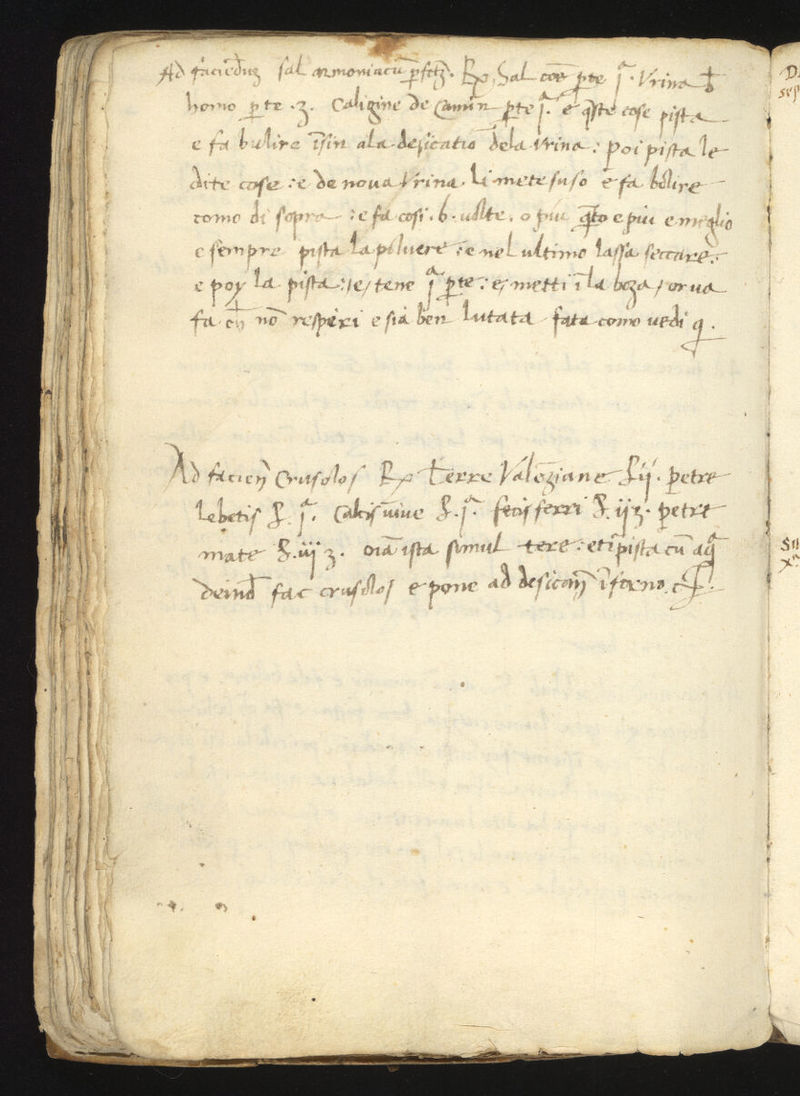 Ad faciēduz sal armoniacū pfctz. Rx Sal coē pte jª. Vrina d
homo p te .3. Caligine de Camin pte jª. e q̄ste cose pista
e fa bulire īsin ala desicatiō dela vrina : poi pista le
dite cose : e de nova Vrina li mete suso e fa bolire
como di sopra : e fa cosi .6. volte. o piu q̄to e piu e meglio
e sempre pista la poluere : e nel ultimo lassa seccare :
e poy la pista : e tene jª pte : e metti ī la boza / or ua
fa nō respiri e sia ben lutata fata como vedi q.
Ad facien Crusolos Rx Terre Valēziane ij. petre
lebetis jª. Calcis uiue jª. fecis ferri ij3. petre
mate iij3. oīa ista simul tere : et īpista cū aqª
deind fac crusolos e pone ad desicand ī forno.
Di